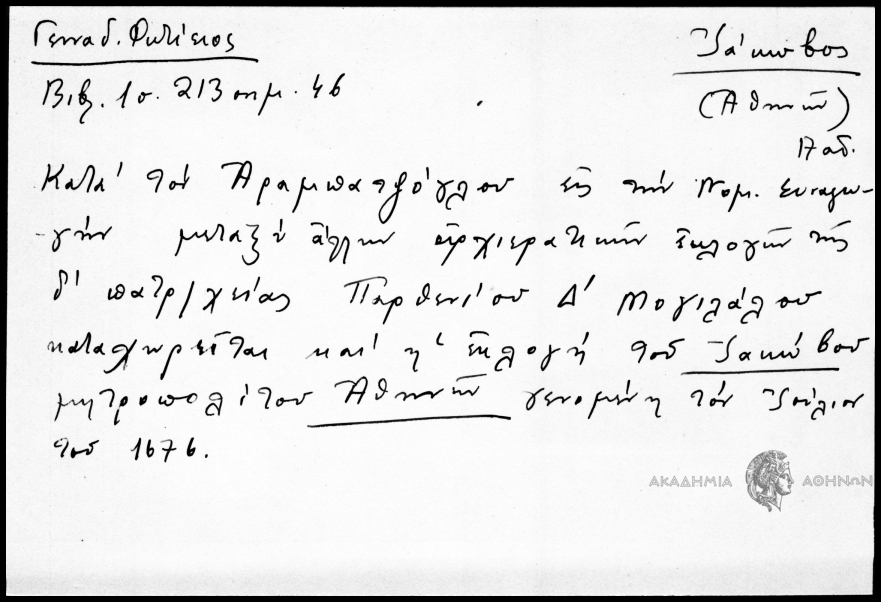 Γενναδ. Φωτίειος
Ἰάκωβος
Βιβλ. 1 σ. 213 σημ. 46
(Ἀθηνῶν)
17 αἰ.
Κατά τόν Ἀραμπατζόγλου εἰς τήν Νομ. Συναγω-
-γήν μεταξύ ἄλλων ἀρχιερατικῶν ἐκλογῶν τῆς
δ' πατρ/χείας Παρθενίου Δ' Μογιλάλου
καταχωρεῖται καί ἡ ἐκλογή τοῦ Ἰακώβου
μητροπολίτου Ἀθηνῶν γενομένη τόν Ἰούλιον
τοῦ 1676.
ΑΚΑΔΗΜΙΑ ΑΘΗΝΩΝ